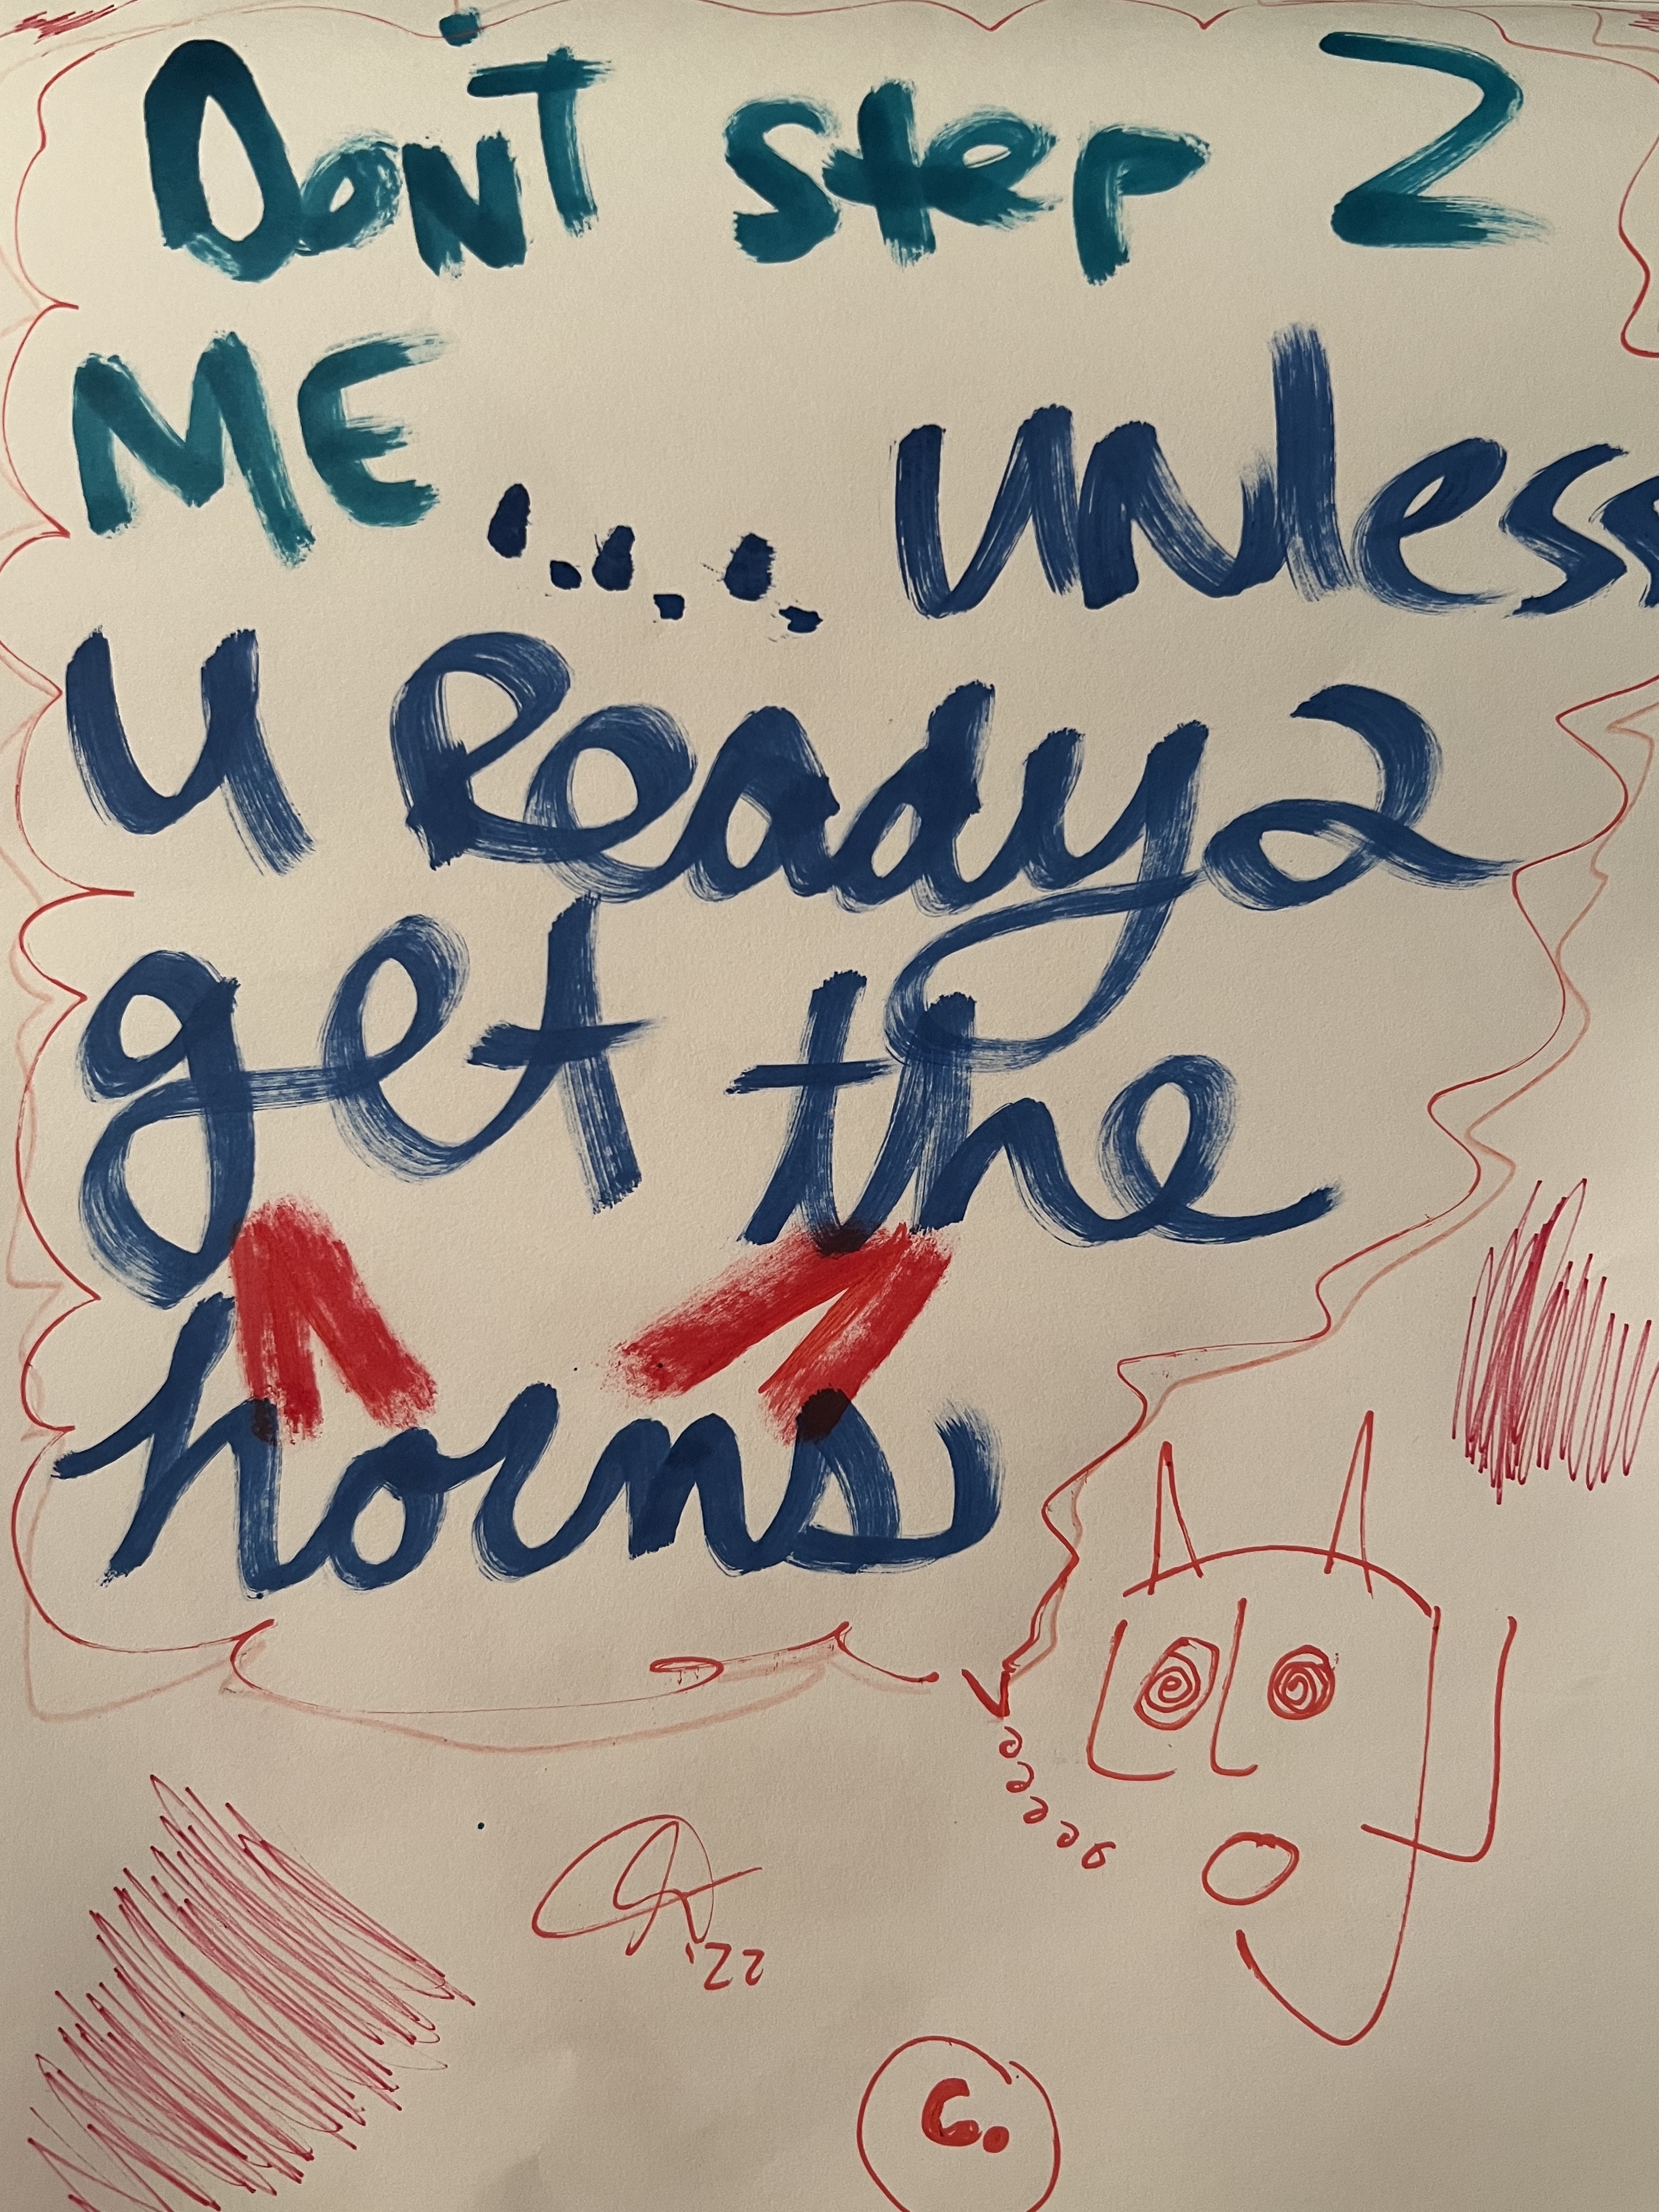 Don't step 2
ME... unless
u Ready 2
get the
horns
'22
6.